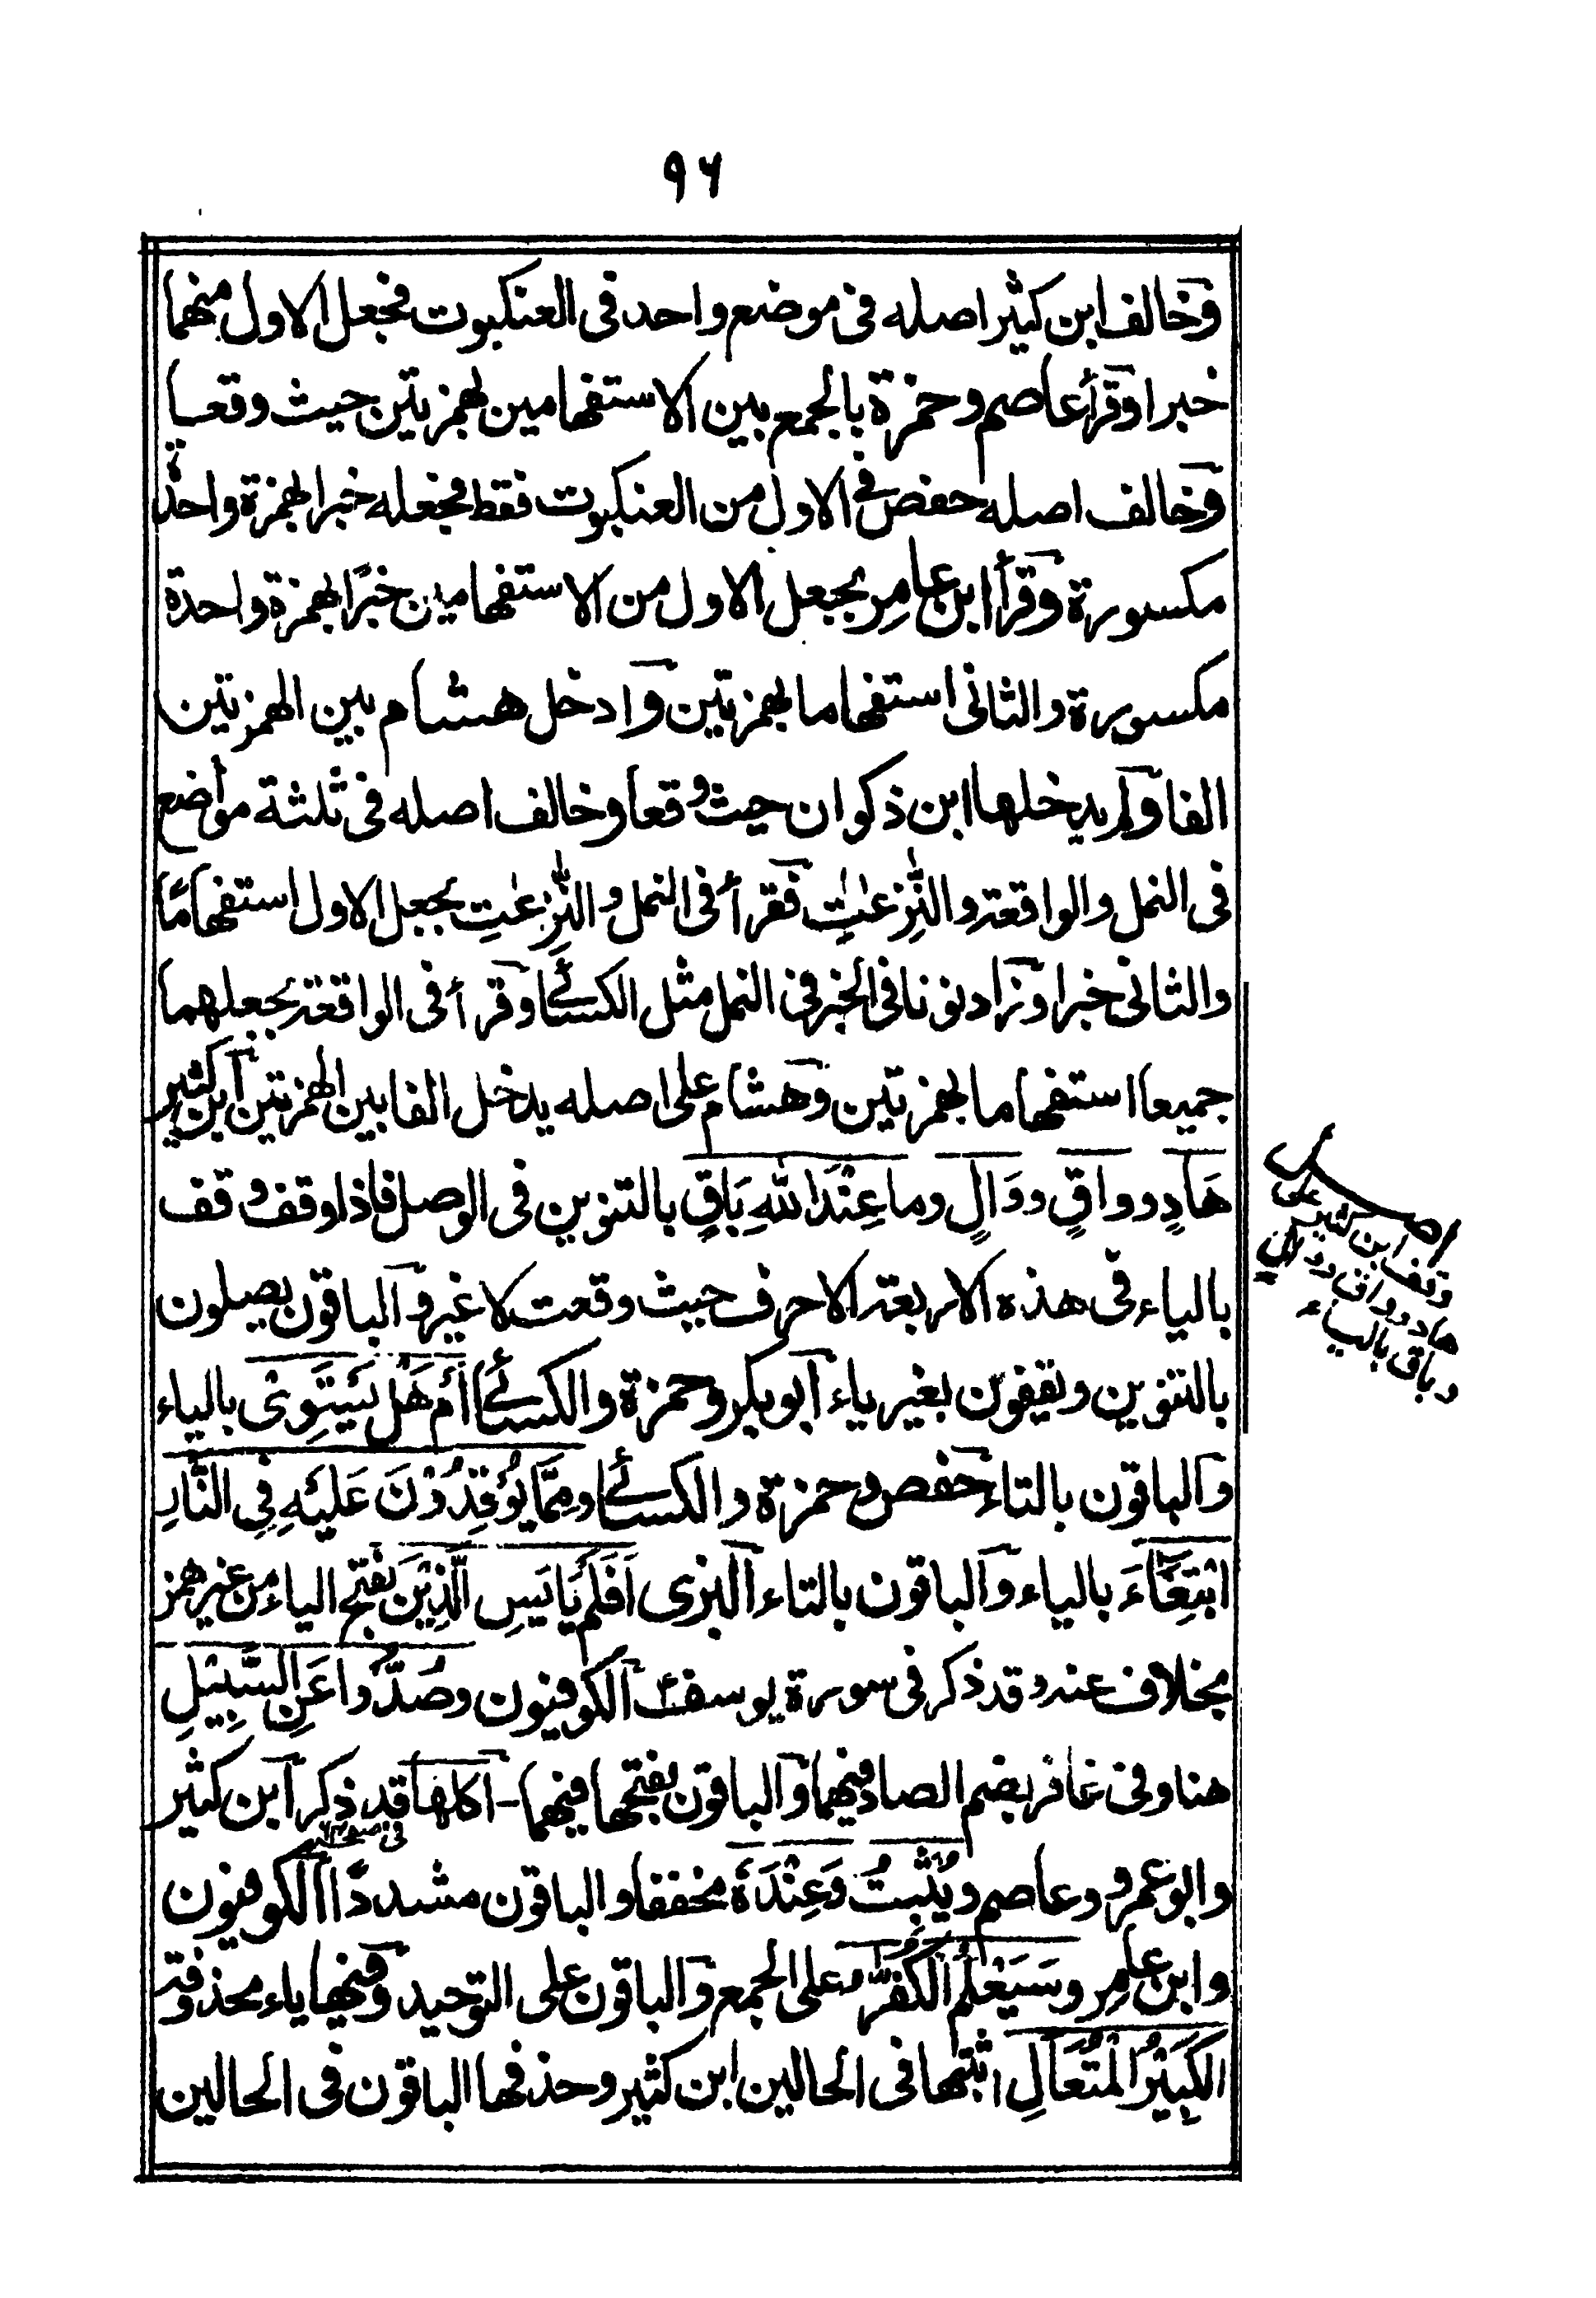 ٩٦
وخالف ابن كثير اصله فى موضع واحد فى العنكبوت فجعل الاول منهما
خبرا وقرأ عاصم وحمزة بالجمع بين الاستفهامين بهمزتين حيث وقعا
وخالف اصله حفص فى الاول من العنكبوت فقط فجعله خبرا بهمزة واحدة
مكسورة وقرأ ابن عامر بجعل الاول من الاستفهامين خبرًا بهمزة واحدة
مكسورة والثانى استفهاما بهمزتين وادخل هشام بين الهمزتين
الفا ولم يدخلها ابن ذكوان حيث وقعا وخالف اصله فى ثلثة مواضع
فى النمل والواقعة والنّٰزِعٰتِ فقرأ فى النمل والنّٰزِعٰتِ بجعل الاول استفهامًا
والثانى خبرا وزاد نونا فى الخبر فى النمل مثل الكسائى وقرأ فى الواقعة بجعلهما
جميعا استفهاما بهمزتين وهشام على اصله يدخل الفا بين الهمزتين ابن كثير
هَادٍ وواقٍ ووَالٍ وما عِنْدَ اللهِ بَاقٍ بالتنوين فى الوصل فاذا وقف وقف
بالياء فى هذه الاربعة الاحرف حيث وقعت لا غير والباقون يصلون
بالتنوين ويقفون بغير ياء ابو بكر وحمزة والكسائى أَمْ هَلْ يَسْتَوِى بالياء
والباقون بالتاء حفص وحمزة والكسائى ومِمَّا يُوْقِدُوْنَ عَلَيْهِ فِى النَّارِ
ابْتِغَآءَ بالياء والباقون بالتاء البزى اَفَلَمْ يَايَسِ الَّذِيْنَ بفتح الياء من غير همز
بخلاف عنه وقد ذكر فى سورة يوسف الكوفيون وصُدُّوا عَنِ السَّبِيْلِ
هنا وفى غافر بضم الصاد فيهما والباقون بفتحها فيهما - اكلها قد ذكر ابن كثير
وابو عمرو وعاصم ويُثْبِتُ وَعِنْدَهٗ مخففا والباقون مشددًا الكوفيون
وابن عامر وسَيَعْلَمُ الْكُفّٰرُ على الجمع والباقون على التوحيد وفيها ياء محذوفة
الكَبِيْرُ الْمُتَعَالِ اثبتها فى الحالين ابن كثير وحذفها الباقون فى الحالين
اصل
وقف ابن كثير على
هاد وواق ووال
وباق بالياء